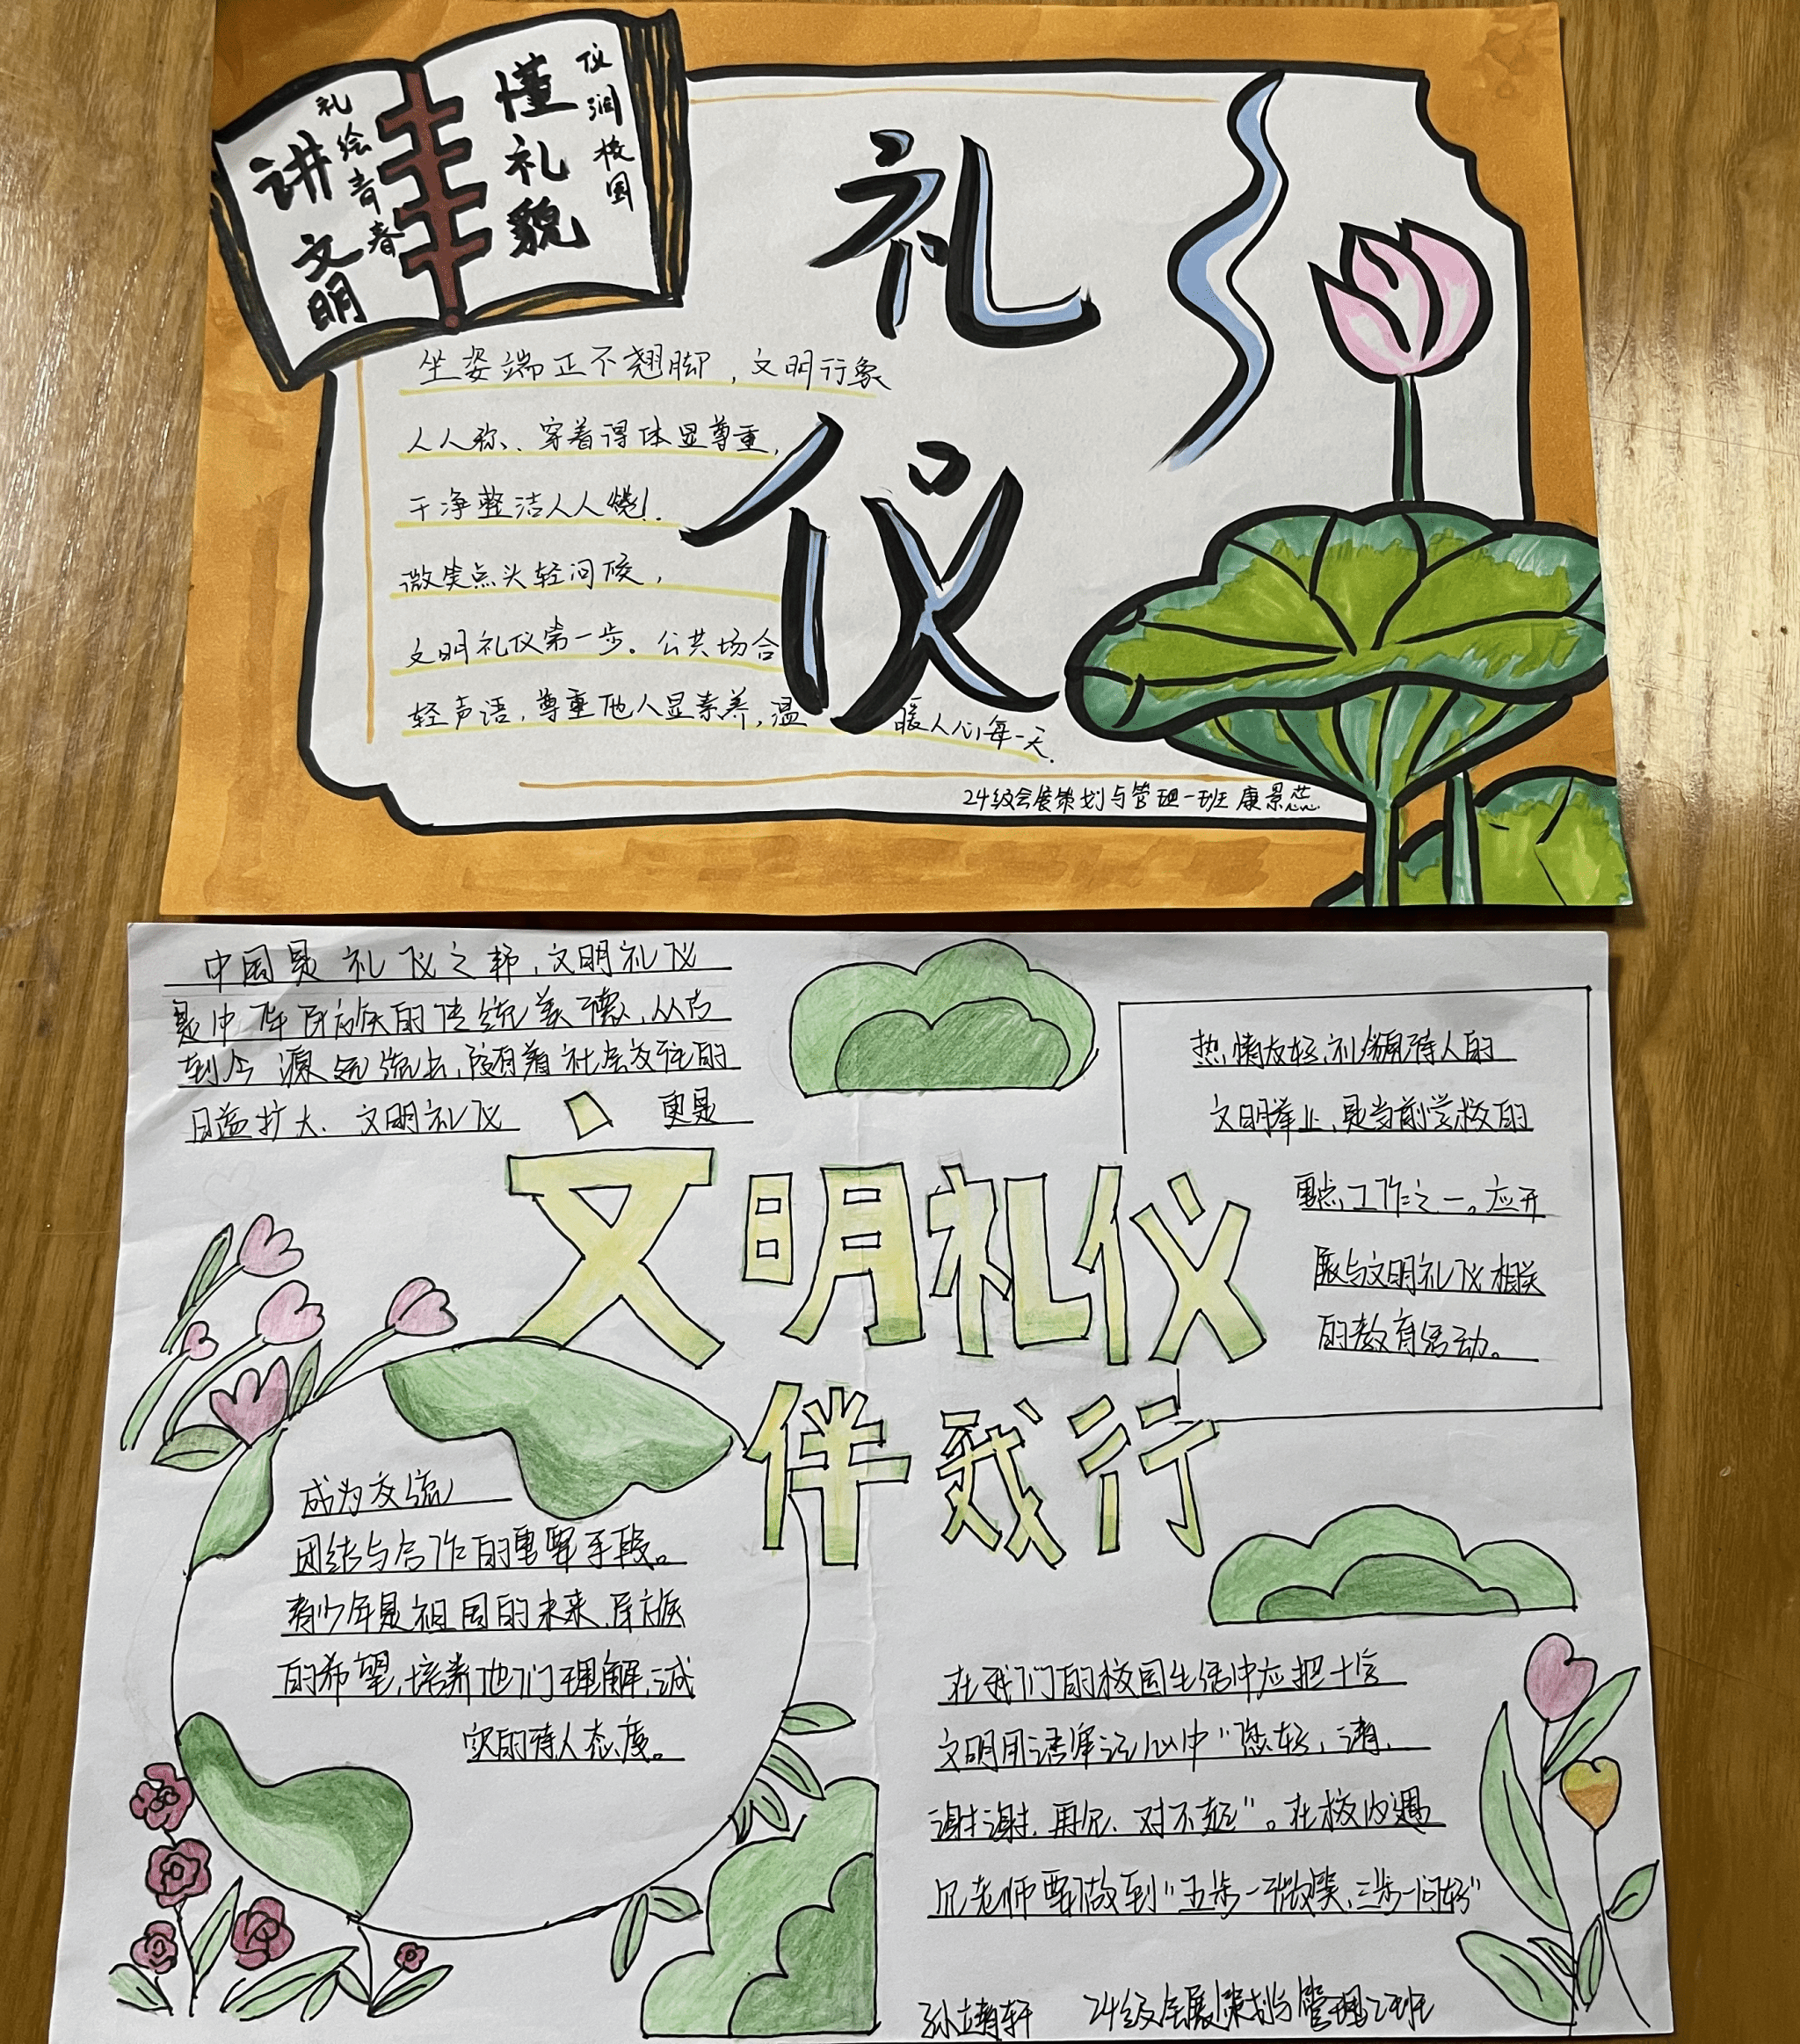 讲文明
礼绘青春
懂礼貌
仪润校园
礼仪
坐姿端正不翘脚，文明行象
人人称、穿着得体显尊重，
干净整洁人人
微笑点头轻问候，
文明礼仪第一步。公共场合
轻声语，尊重他人显素养，温暖人心每一天.
24级会展策划与管理一班 康景芯
中国是礼仪之邦，文明礼仪
是中华民族的传统美德，从古
到今 源远流长，随着社会交往的
日益扩大、文明礼仪 更是
文明礼仪
伴我行
热情友好，礼貌待人的
文明举止，是当前学校的
重点工作之一。应开
展与文明礼仪相关
的教育活动。
成为交流
团结与合作的重要手段。
青少年是祖国的未来，民族
的希望，培养他们理解，诚
实的待人态度。
在我们的校园生活中应把十字
文明用语牢记心中“您好，请，
谢谢，再见，对不起”。在校内遇
见老师要做到“五步一微笑，三步一问好”
24级会展策划与管理2班